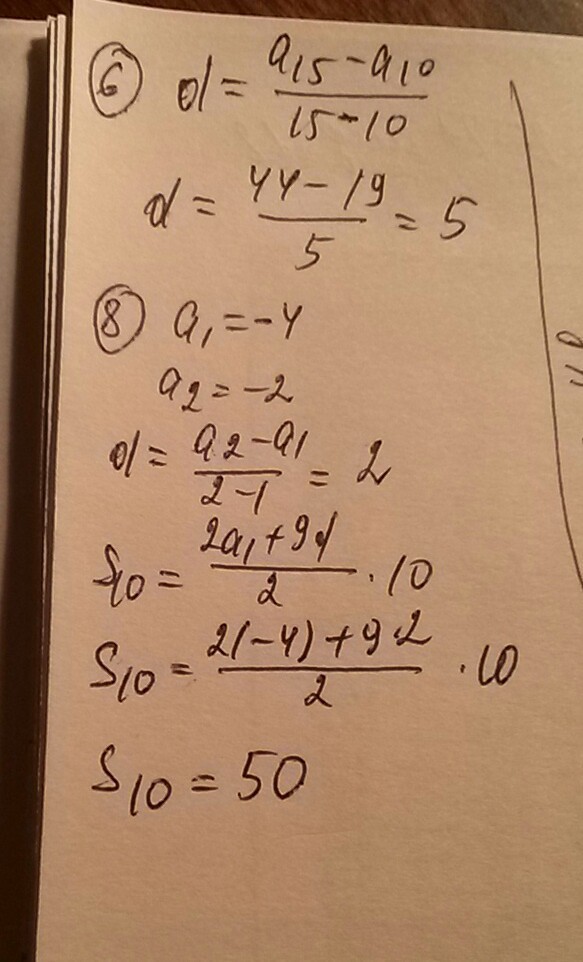 ⑥ d = (a15 - a10)/(15 - 10)
d = (44 - 19)/5 = 5
⑧ a1 = -4
a2 = -2
d = (a2 - a1)/(2 - 1) = 2
S10 = (2a1 + 9d)/2 · 10
S10 = (2(-4) + 9·2)/2 · 10
S10 = 50